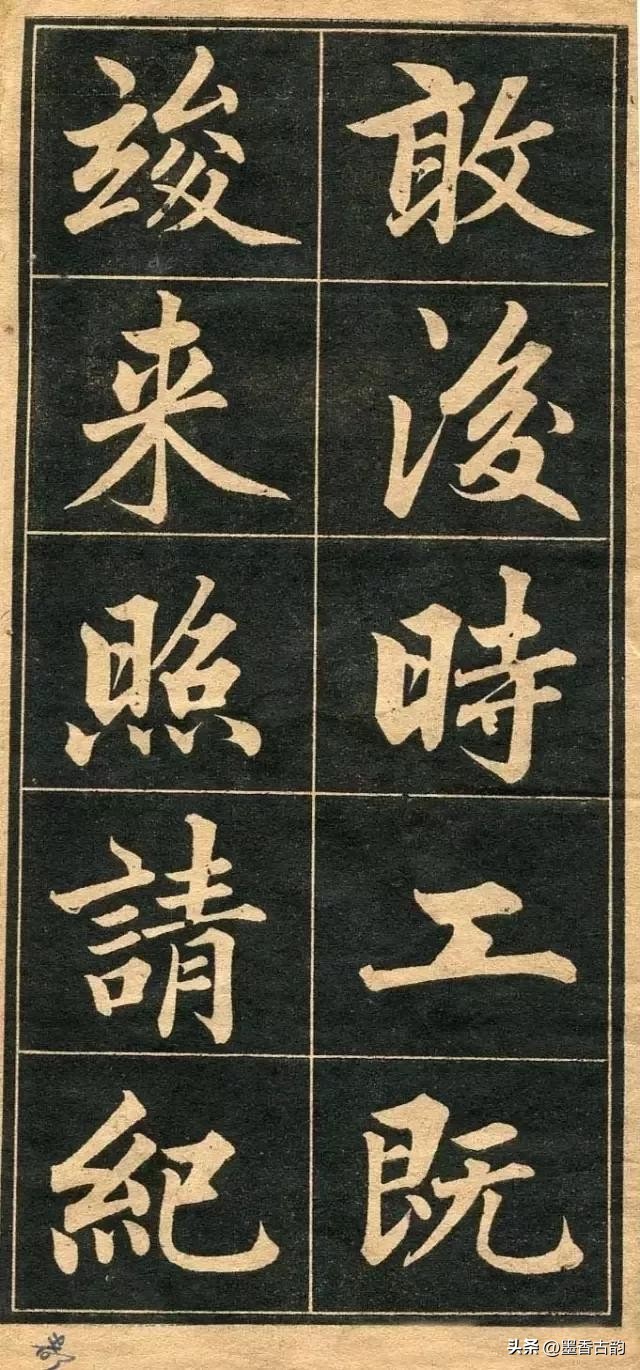 敢後時工既
竣来照請紀
头条 @墨香古韵